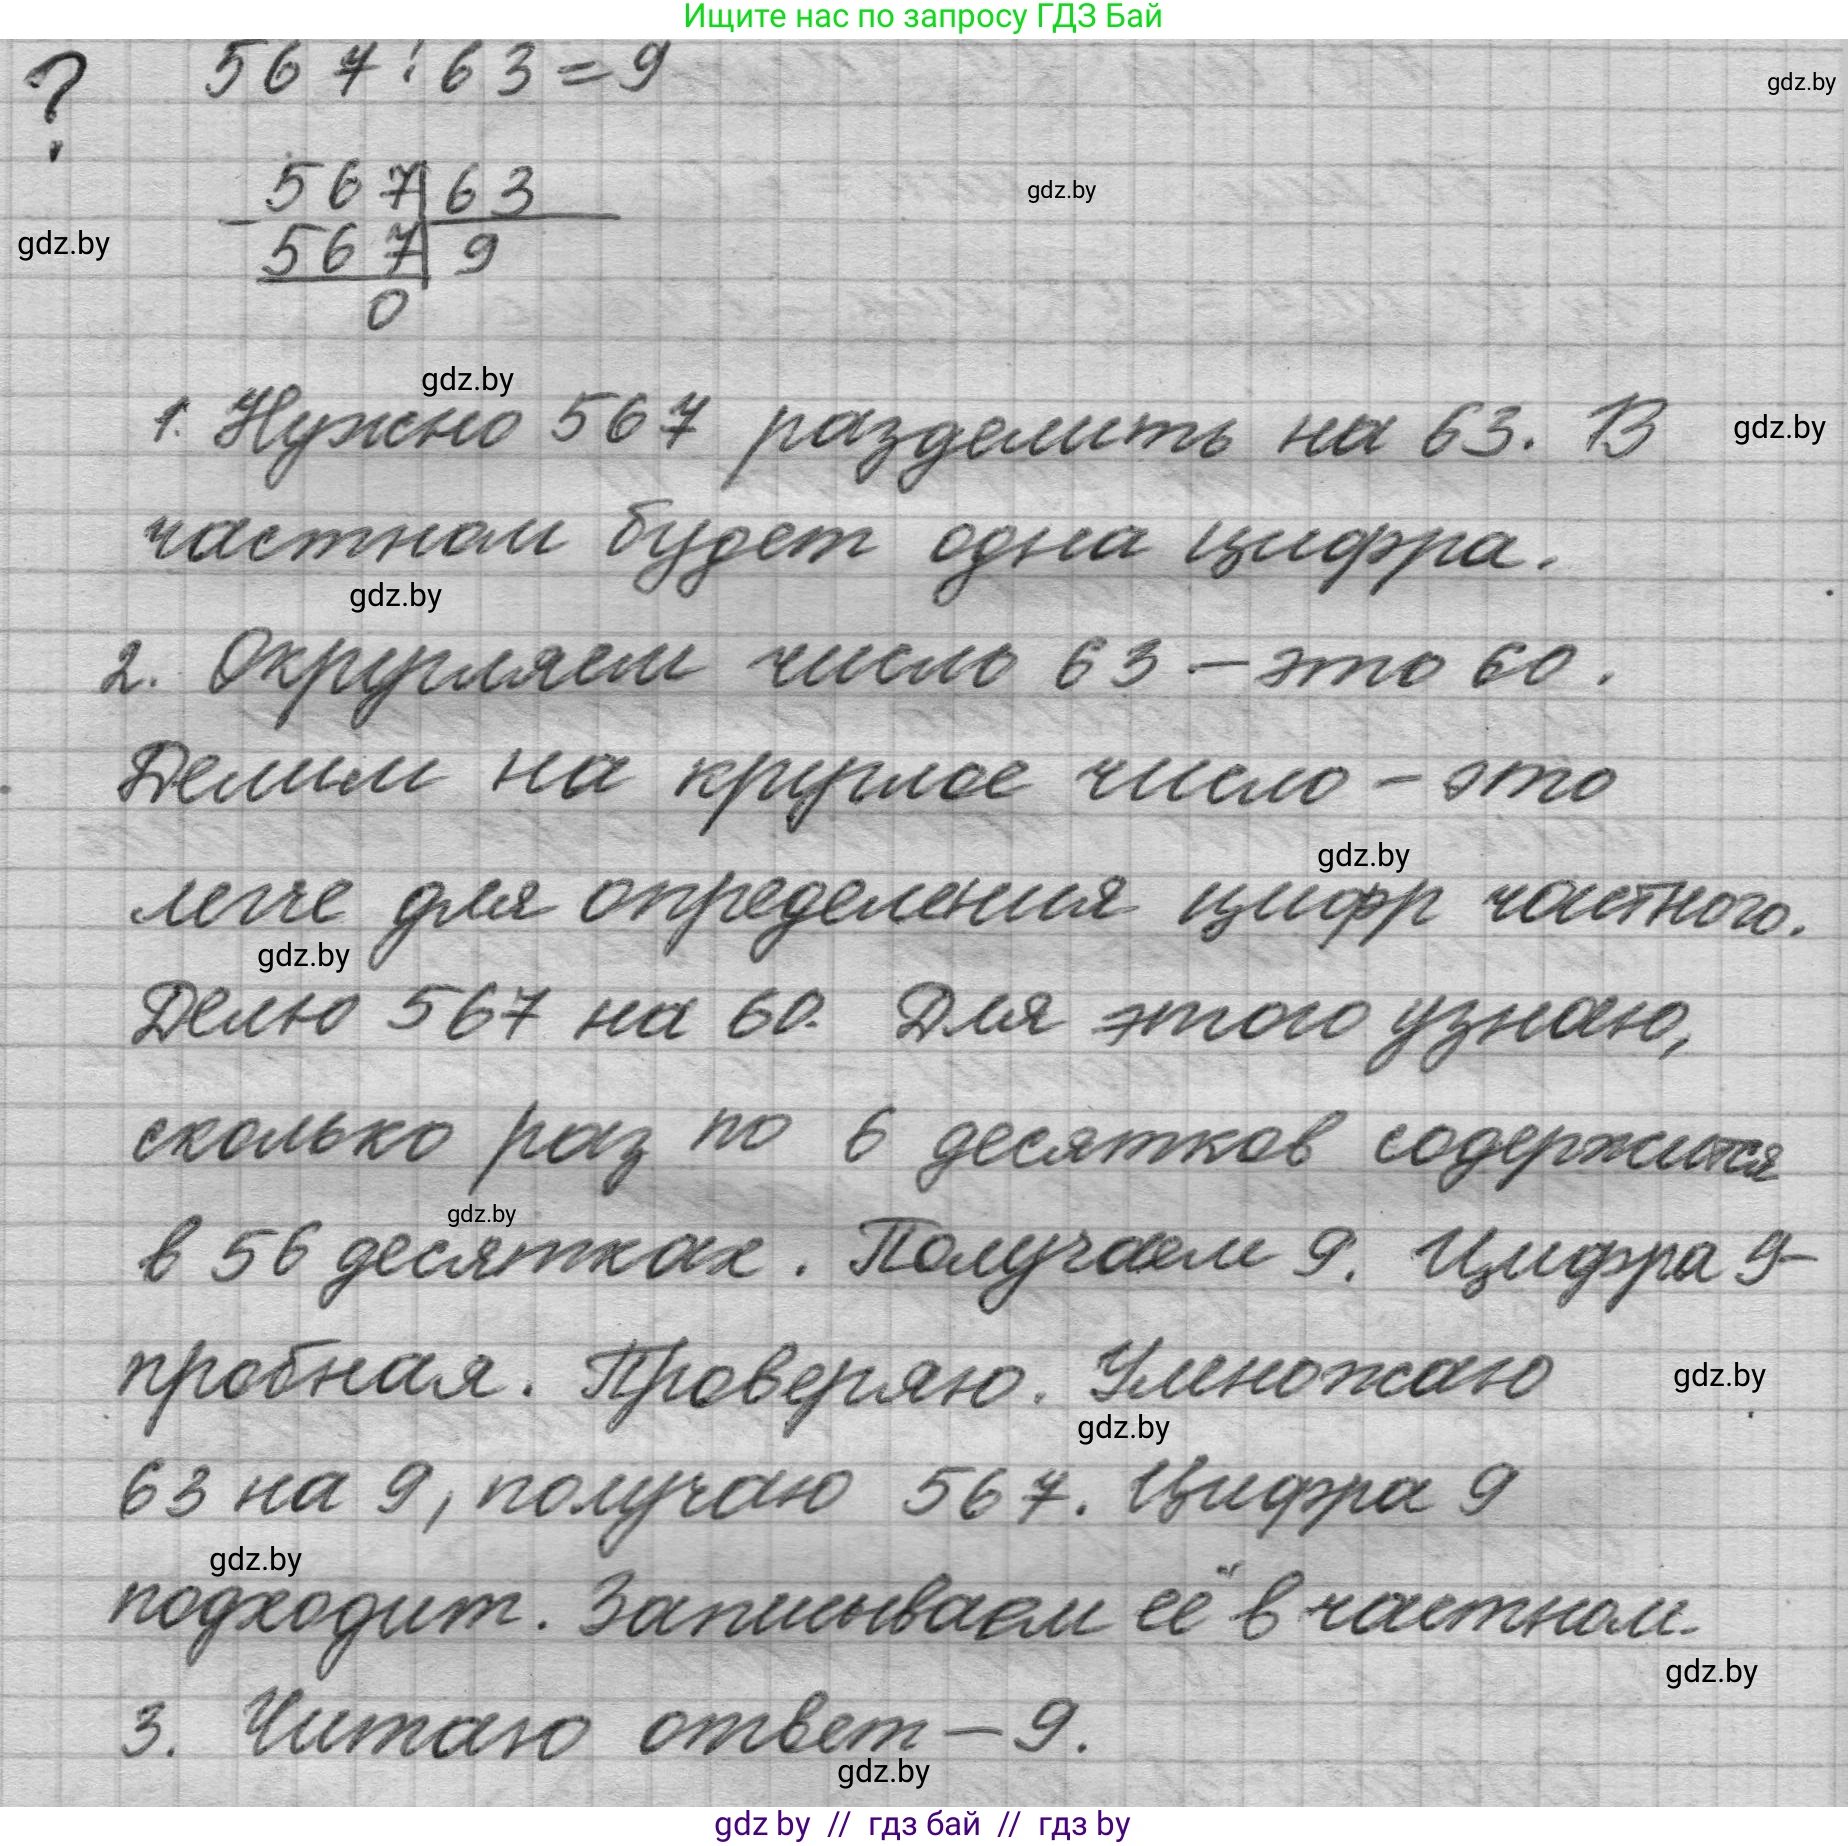 Ищите нас по запросу ГДЗ Бай
? 567 : 63 = 9
gdz.by
567 63
gdz.by
- 567 9
gdz.by
0
gdz.by
1. Нужно 567 разделить на 63. В
gdz.by
частном будет одна цифра.
gdz.by
2. Округляем число 63 - это 60.
Делим на круглое число - это
gdz.by
легче для определения цифр частного.
gdz.by
Делю 567 на 60. Для этого узнаю,
сколько раз по 6 десятков содержится
gdz.by
в 56 десятках. Получаем 9. Цифра 9-
пробная. Проверяю. Умножаю
gdz.by
gdz.by
63 на 9, получаю 567. Цифра 9
gdz.by
подходит. Записываем её в частном.
gdz.by
3. Читаю ответ - 9.
gdz.by
gdz by // гдз бай // гдз by